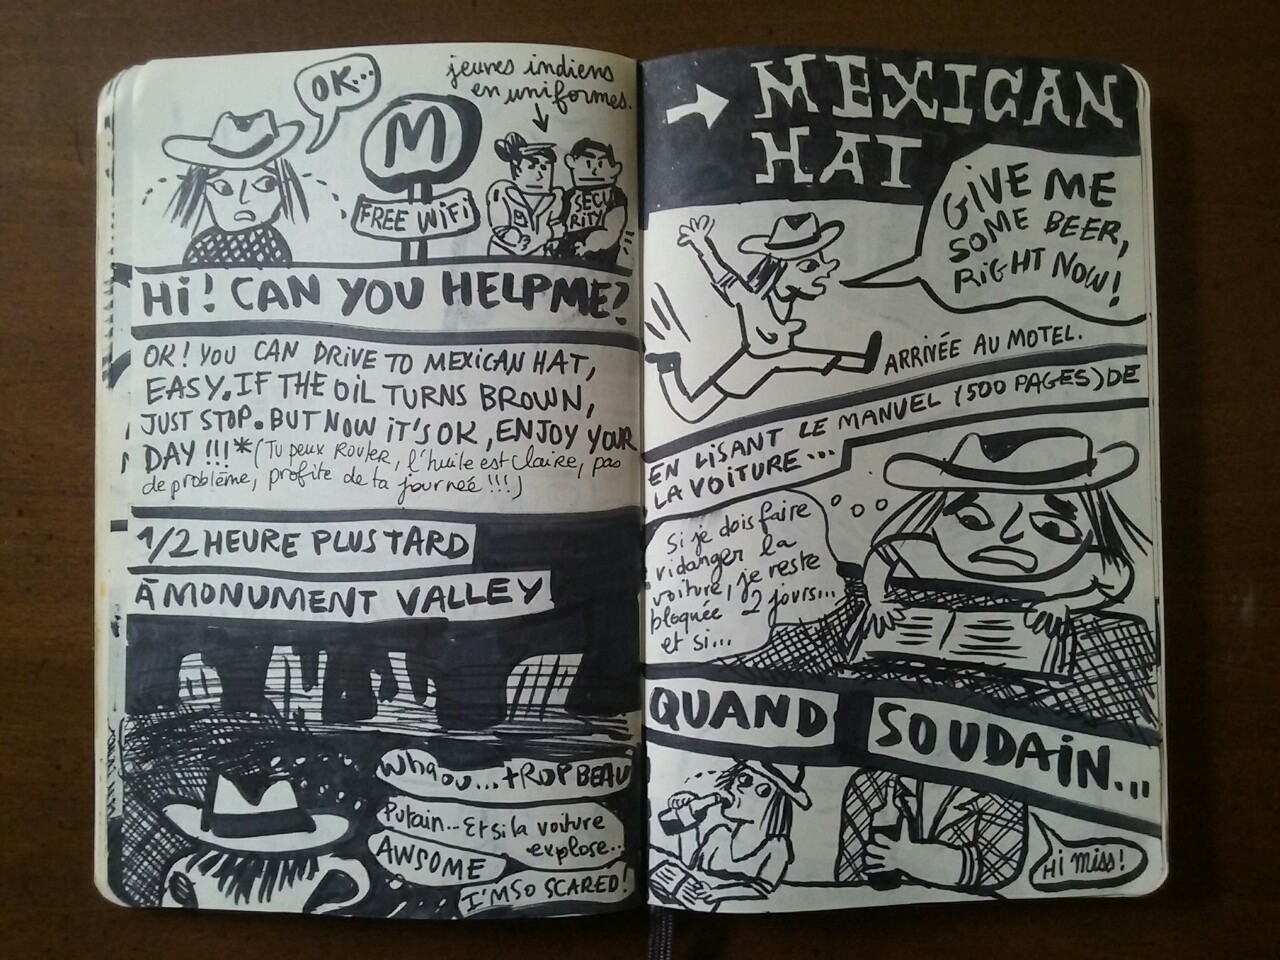 OK...
jeunes indiens
en uniformes.
M
FREE WiFi
SECU
RITY
Hi! CAN YOU HELP ME?
OK! YOU CAN DRIVE TO MEXICAN HAT,
EASY. IF THE OiL TURNS BROWN,
JUST STOP. BUT NOW iT'S OK, ENJOY YOUR
DAY !!!* (Tu peux Rouler, l'huile est claire, pas
de problème, profite de ta journée !!!)
1/2 HEURE PLUS TARD
À MONUMENT VALLEY
Whaou... tROP BEAU
Putain... Et si la voiture
explose...
AWSOME
I'M SO SCARED!
→ MEXICAN
HAT
GiVE ME
SOME BEER,
RiGHT NOW!
ARRIVÉE AU MOTEL.
EN LiSANT LE MANUEL (500 PAGES) DE
LA VOITURE...
Si je dois faire
vidanger la
voiture, je reste
bloquée 2 jours...
et si...
QUAND SOUDAiN...
Hi miss!